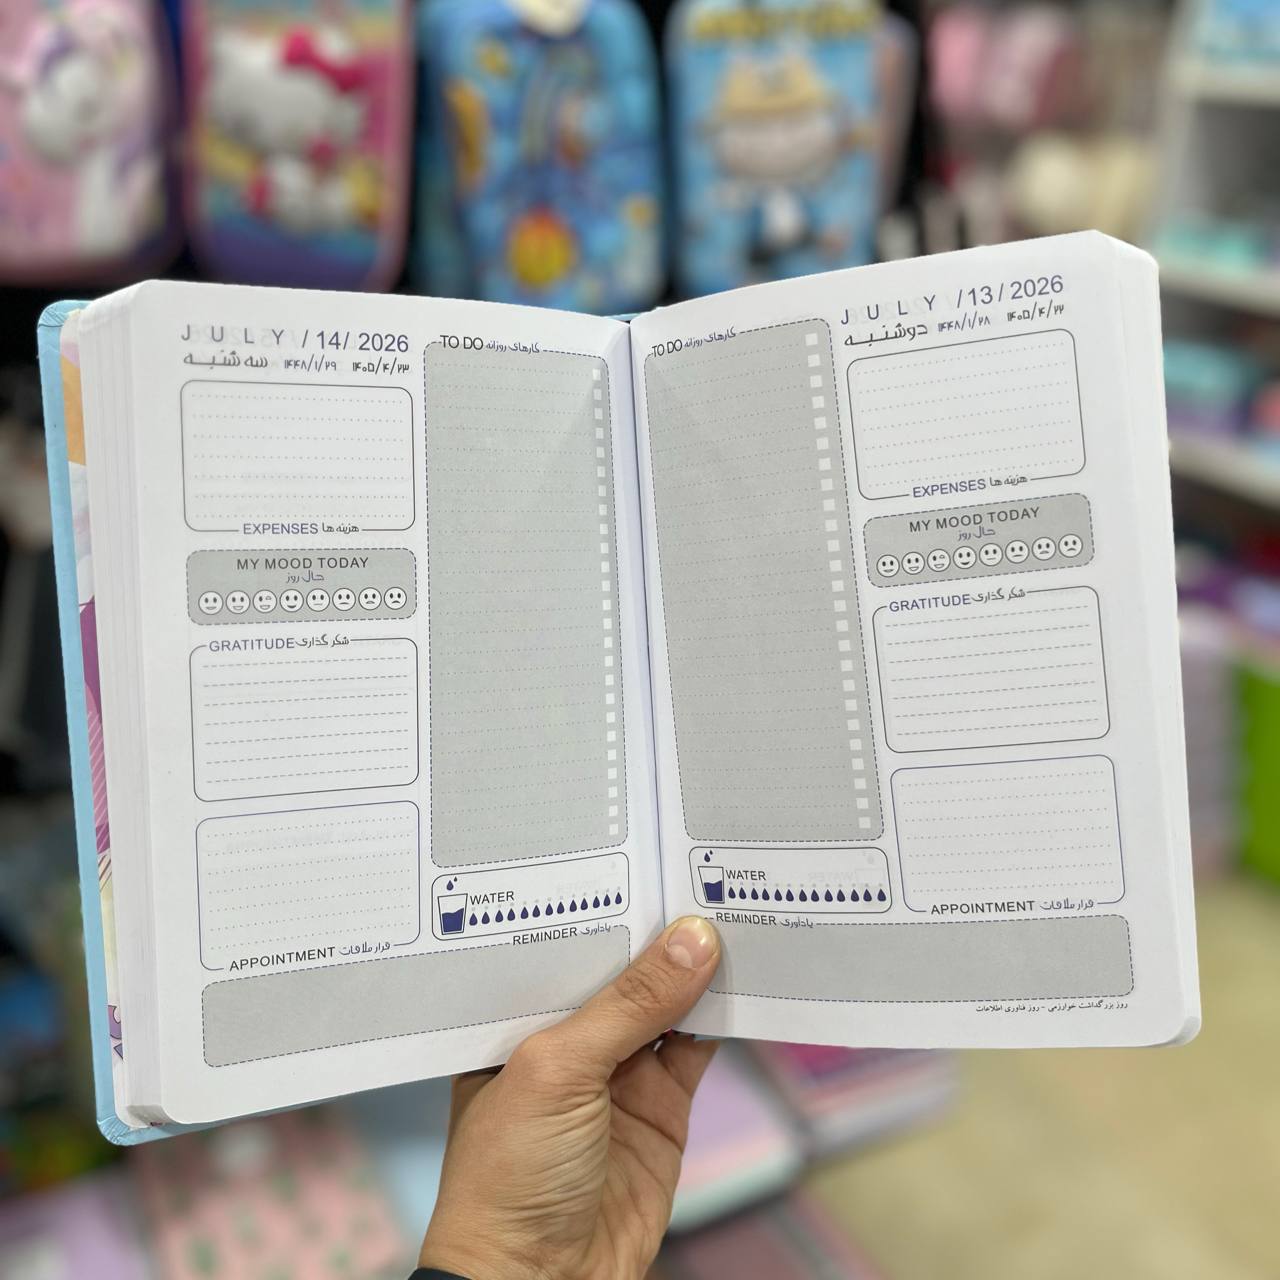 JULY / 13 / 2026
دوشنبه ۱۴۴۸/۱/۲۸ ۱۴۰۵/۴/۲۲
EXPENSES هزینه ها
MY MOOD TODAY
حال روز
GRATITUDE شکر گذاری
APPOINTMENT قرار ملاقات
TO DO کارهای روزانه
WATER
REMINDER یادآوری
روز بزرگداشت خوارزمی - روز فناوری اطلاعات
JULY / 14 / 2026
سه شنبه ۱۴۴۸/۱/۲۹ ۱۴۰۵/۴/۲۳
EXPENSES هزینه ها
MY MOOD TODAY
حال روز
GRATITUDE شکر گذاری
APPOINTMENT قرار ملاقات
TO DO کارهای روزانه
WATER
REMINDER یادآوری